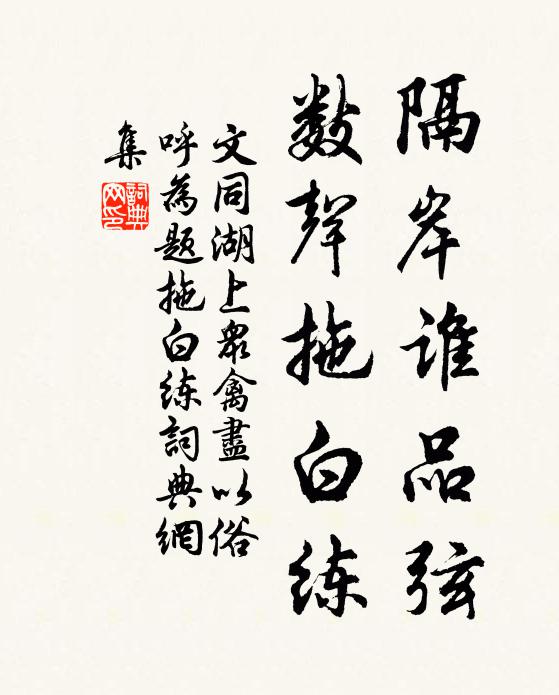 隔岸谁品弦
数声拖白练
文同湖上众禽尽以俗
呼为题拖白练词典网
集
詞典
网印